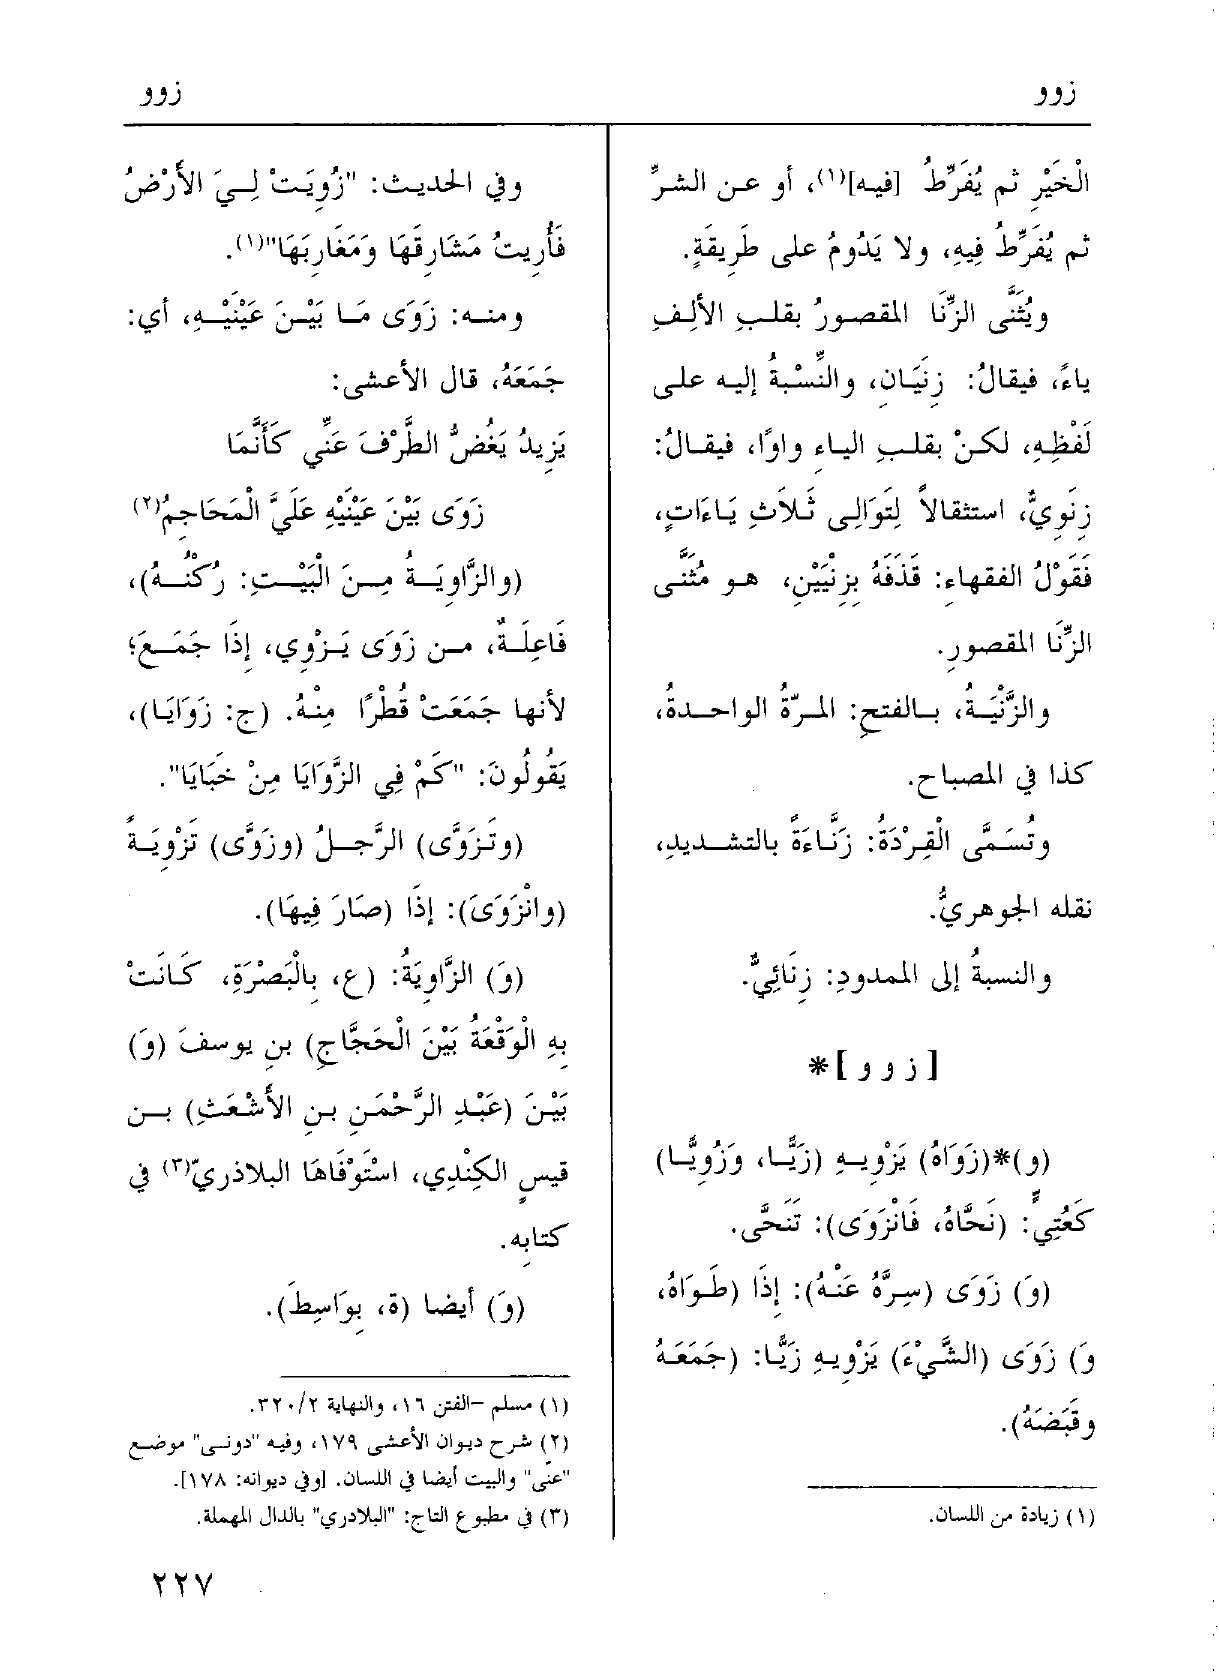 زوو
زوو
الْخَيْرِ ثم يُفَرِّطُ [فيه](١)، أو عن الشرِّ
ثم يُفَرِّطُ فِيهِ، ولا يَدُومُ على طَرِيقَةٍ.
ويُثَنَّى الزِّنَا المقصورُ بقلبِ الألِفِ
ياءً، فيقالُ: زِنَيَانِ، والنِّسْبةُ إليه على
لَفْظِهِ، لكنْ بقلبِ الياءِ واوًا، فيقالُ:
زِنَوِيٌّ، استثقالاً لِتَوَالِى ثَلَاثِ يَاءَاتٍ،
فَقَوْلُ الفقهاءِ: قَذَفَهُ بِزِنَيَيْنِ، هو مُثَنَّى
الزِّنَا المقصورِ.
والزَّنْيَةُ، بالفتحِ: المرّةُ الواحدةُ،
كذا في المصباح.
وتُسَمَّى الْقِرْدَةُ: زَنَّاءَةً بالتشديدِ،
نقله الجوهريُّ.
والنسبةُ إلى الممدودِ: زِنَائِيٌّ.
[ ز و و ]*
(و)*(زَوَاهُ) يَزْوِيهِ (زَيًّا، وَزُوِيًّا)
كَعُتِيٍّ: (نَحَّاهُ، فَانْزَوَى): تَنَحَّى.
(وَ) زَوَى (سِرَّهُ عَنْهُ): إِذَا (طَوَاهُ،
وَ) زَوَى (الشَّيْءَ) يَزْوِيهِ زَيًّا: (جَمَعَهُ
وقَبَضَهُ).
(١) زيادة من اللسان.
وفي الحديث: "زُوِيَتْ لِيَ الأَرْضُ
فَأُرِيتُ مَشَارِقَهَا وَمَغَارِبَهَا"(١).
ومنه: زَوَى مَا بَيْنَ عَيْنَيْهِ، أي:
جَمَعَهُ، قال الأعشى:
يَزِيدُ يَغُضُّ الطَّرْفَ عَنِّي كَأَنَّمَا
زَوَى بَيْنَ عَيْنَيْهِ عَلَيَّ الْمَحَاجِمُ(٢)
(والزَّاوِيَةُ مِنَ الْبَيْتِ: رُكْنُهُ)،
فَاعِلَةٌ، من زَوَى يَزْوِي، إِذَا جَمَعَ؛
لأنها جَمَعَتْ قُطْرًا مِنْهُ. (ج: زَوَايَا)،
يَقُولُونَ: "كَمْ فِي الزَّوَايَا مِنْ خَبَايَا".
(وتَزَوَّى) الرَّجلُ (وزَوَّى) تَزْوِيَةً
(وانْزَوَىَ): إِذَا (صَارَ فِيهَا).
(وَ) الزَّاوِيَةُ: (ع، بِالْبَصْرَةِ، كَانَتْ
بِهِ الْوَقْعَةُ بَيْنَ الْحَجَّاجِ) بنِ يوسفَ (وَ)
بَيْنَ (عَبْدِ الرَّحْمَنِ بنِ الأَشْعَثِ) بن
قيسٍ الكِنْدِي، اسْتَوْفَاهَا البلاذريّ(٣) في
كتابِه.
(وَ) أيضا (ة، بِوَاسِطَ).
(١) مسلم –الفتن ١٦، والنهاية ٣٢٠/٢.
(٢) شرح ديوان الأعشى ١٧٩، وفيه "دوني" موضع
"عنّي" والبيت أيضا في اللسان. [وفي ديوانه: ١٧٨].
(٣) في مطبوع التاج: "البلادري" بالدال المهملة.
٢٢٧